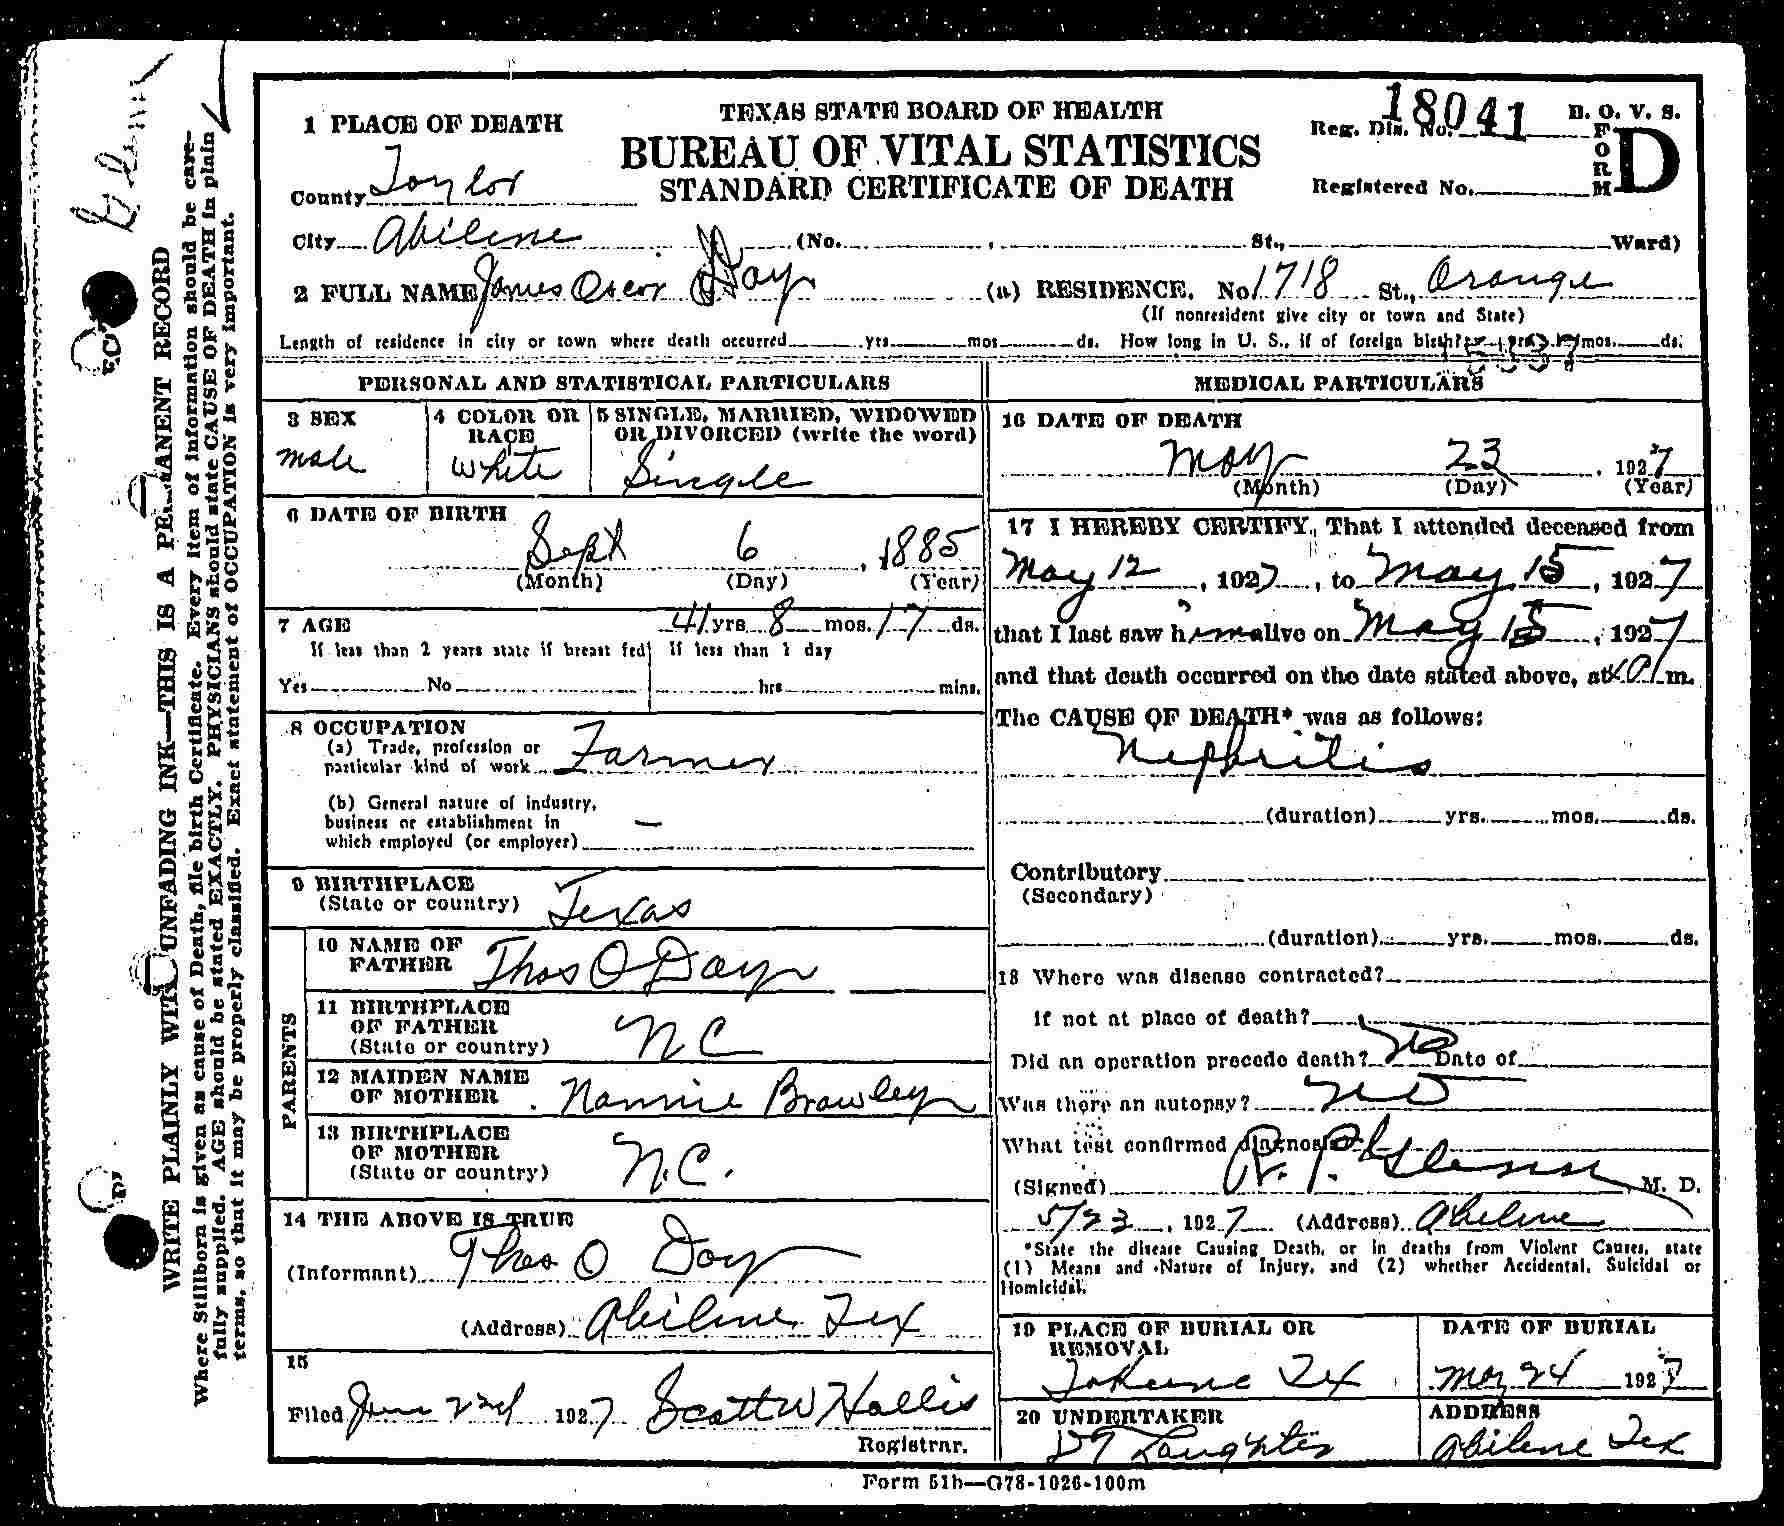 TEXAS STATE BOARD OF HEALTH
BUREAU OF VITAL STATISTICS
STANDARD CERTIFICATE OF DEATH
Reg. Dis. No. 18041
B. O. V. S.
FORM D
Registered No.
1 PLACE OF DEATH
County Taylor
City Abilene (No. , St., Ward)
2 FULL NAME James Oscar Day (a) RESIDENCE. No. 1718 St., Orange
(If nonresident give city or town and State)
Length of residence in city or town where death occurred yrs. mos. ds. How long in U. S., if of foreign birth? yrs. mos. ds.
PERSONAL AND STATISTICAL PARTICULARS
3 SEX
male
4 COLOR OR RACE
white
5 SINGLE, MARRIED, WIDOWED
OR DIVORCED (write the word)
Single
6 DATE OF BIRTH
Sept 6, 1885
(Month) (Day) (Year)
7 AGE 41 yrs. 8 mos. 17 ds.
If less than 2 years state if breast fed If less than 1 day
Yes No hrs mins.
8 OCCUPATION
(a) Trade, profession or
particular kind of work Farmer
(b) General nature of industry,
business or establishment in —
which employed (or employer)
9 BIRTHPLACE
(State or country) Texas
PARENTS
10 NAME OF
FATHER Thos O Day
11 BIRTHPLACE
OF FATHER
(State or country) N C
12 MAIDEN NAME
OF MOTHER Nannie Brawley
13 BIRTHPLACE
OF MOTHER
(State or country) N.C.
14 THE ABOVE IS TRUE
(Informant) Thos O Day
(Address) Abilene Tex
15
Filed June 2nd 1927 Scott W Hollis
Registrar.
MEDICAL PARTICULARS
16 DATE OF DEATH
May 23, 1927
(Month) (Day) (Year)
17 I HEREBY CERTIFY, That I attended deceased from
May 12, 1927, to May 15, 1927
that I last saw him alive on May 15, 1927
and that death occurred on the date stated above, at m.
The CAUSE OF DEATH* was as follows:
Nephritis
(duration) yrs. mos. ds.
Contributory
(Secondary)
(duration) yrs. mos. ds.
18 Where was disease contracted?
if not at place of death?
Did an operation precede death? No Date of
Was there an autopsy? no
What test confirmed diagnosis?
(Signed) R. P. Glenn, M. D.
5/23, 1927 (Address) Abilene
*State the disease Causing Death, or in deaths from Violent Causes, state
(1) Means and Nature of Injury, and (2) whether Accidental, Suicidal or
Homicidal.
19 PLACE OF BURIAL OR
REMOVAL
Tex
DATE OF BURIAL
May 24 1927
20 UNDERTAKER
Laughter
ADDRESS
Abilene Tex
Form 51b—G78-1026-100m
Glenn
WRITE PLAINLY WITH UNFADING INK—THIS IS A PERMANENT RECORD
Where Stillborn is given as cause of Death, file birth Certificate. Every item of information should be care-
fully supplied. AGE should be stated EXACTLY. PHYSICIANS should state CAUSE OF DEATH in plain
terms, so that it may be properly classified. Exact statement of OCCUPATION is very important.